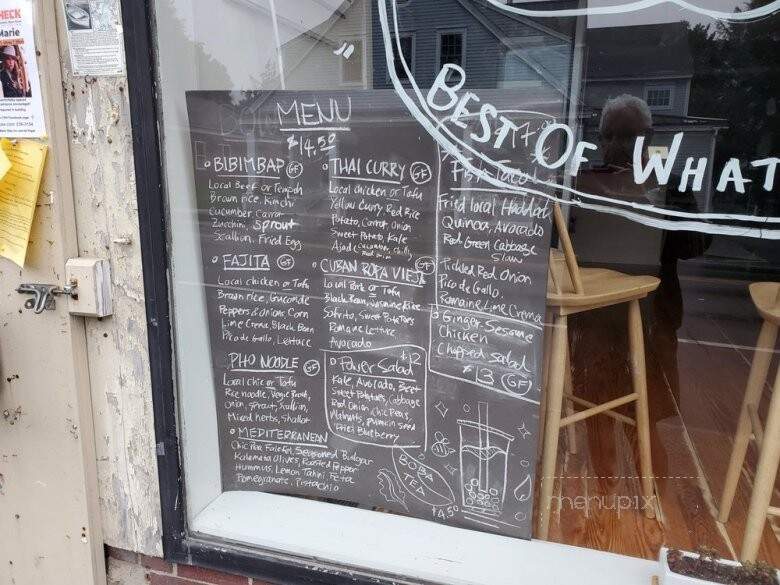 HECK
Marie
MENU
$14.50
BIBIMBAP GF
Local Beef or Tempeh
Brown rice, Kimchi
Cucumber, Carrot
Zucchini, Sprout
Scallion, Fried Egg
FAJITA GF
Local chicken or Tofu
Brown rice, Guacamole
Peppers & onion, Corn
Lime Crema, Black Bean
Pico de Gallo, Lettuce
PHO NOODLE GF
Local chic or Tofu
Rice noodle, Vegie Broth,
Onion, Sprout, Scallion,
Mixed herbs, Shallot
MEDITERRANEAN
Chic Pea Falafel, Seasoned Bulgar
Kalamata Olives, Roasted Pepper
Hummus, Lemon Tahini, Feta
Pomegranate, Pistachio
THAI CURRY GF
Local chicken or Tofu
Yellow Curry Red Rice
Potato, Carrot, Onion
Sweet Potato Kale
Cucumber, Chilly
CUBAN ROPA VIEJA GF
Local Pork or Tofu
Black Bean, Jasmine Rice
Sofrito, Sweet Potatoes
Romaine Lettuce
Avocado
Power Salad $12
Kale, Avocado, Beet
Sweet Potatoes, Cabbage
Red Onion, Chic Peas,
Walnuts, Pumpkin seed
Dried Blueberry
BOBA
TEA
$4.50
Fish Taco
Fried local Haddock
Quinoa, Avocado
Red, Green Cabbage
Slaw
Pickled Red Onion
Pico de Gallo,
Romaine, Lime Crema
Ginger Sesame
Chicken
Chopped Salad
$13 GF
BEST OF WHAT
menupix